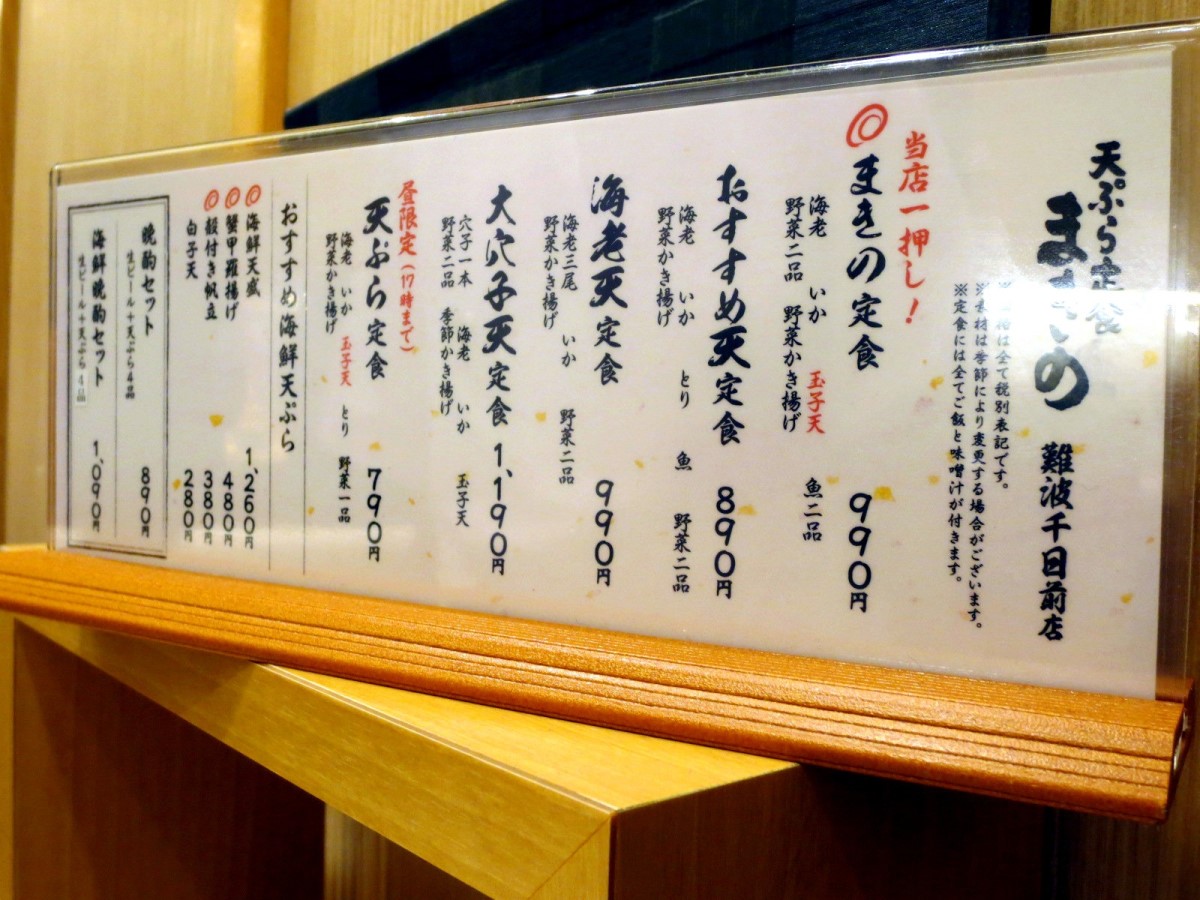 天ぷら定食
まきの 難波千日前店
※価格は全て税別表記です。
※素材は季節により変更する場合がございます。
※定食には全てご飯と味噌汁が付きます。
当店一押し!
◎まきの定食 990円
海老 いか 玉子天 魚二品
野菜二品 野菜かき揚げ
おすすめ天定食 890円
海老 いか とり 魚 野菜二品
野菜かき揚げ
海老天定食 990円
海老三尾 いか 野菜二品
野菜かき揚げ
大穴子天定食 1,190円
穴子一本 海老 いか 玉子天
野菜二品 季節かき揚げ
昼限定(17時まで)
天ぷら定食 790円
海老 いか 玉子天 とり 野菜一品
野菜かき揚げ
おすすめ海鮮天ぷら
◎海鮮天盛 1,260円
◎蟹甲羅揚げ 480円
◎殻付き帆立 380円
白子天 280円
晩酌セット 890円
生ビール+天ぷら4品
海鮮晩酌セット 1,090円
生ビール+天ぷら4品